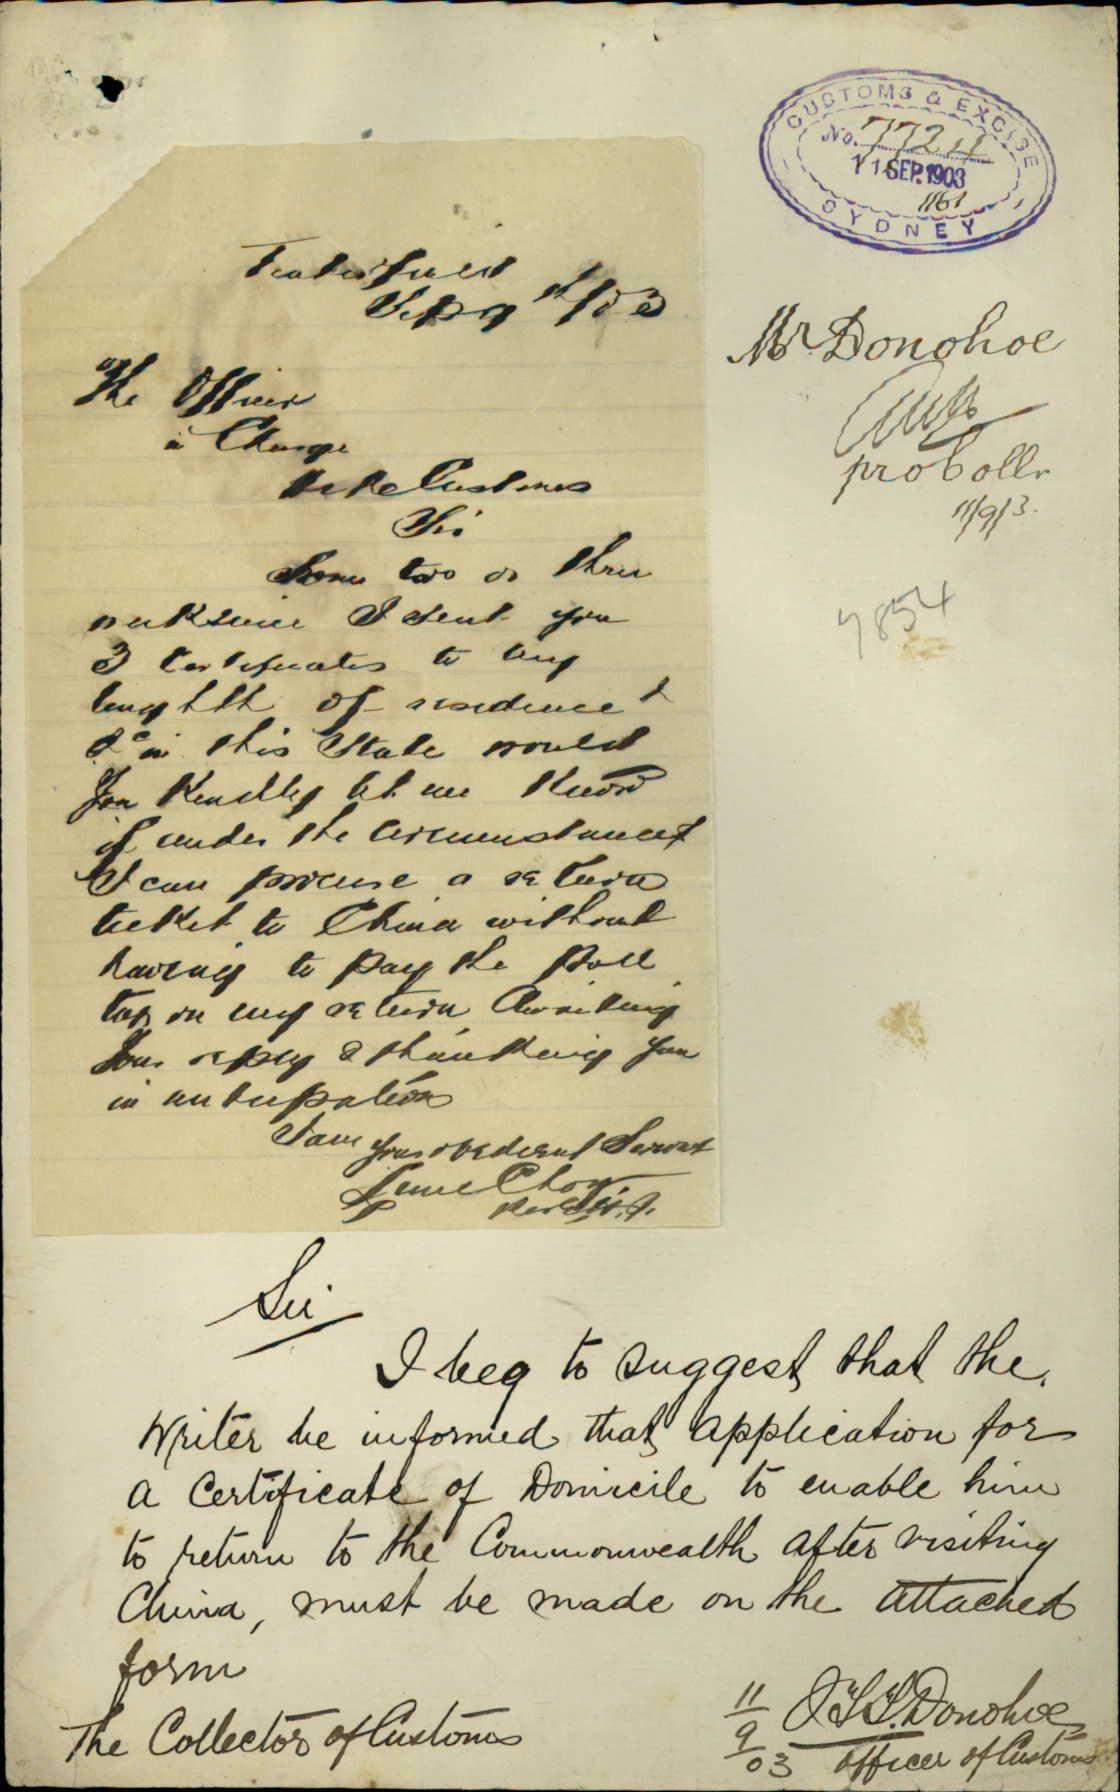 CUSTOMS & EXCISE
No. 7724
11 SEP. 1903
1161
SYDNEY
Mr Donohoe
pro Collr
11/9/3.
7854
Tenterfield
Sep 9th / 03
The Officer
in Charge
Customs
Sir
Some two or three
weeks since I sent you
3 Certificates to my
length of residence &
&c in this State would
you Kindly let me Know
if under the circumstances
I can procure a return
ticket to China without
having to pay the Poll
tax on my return Awaiting
your reply & thanking you
in anticipation
I am
your obedient Servant
Choy
Sir
I beg to suggest that the
Writer be informed that application for
a Certificate of Domicile to enable him
to return to the Commonwealth after visiting
China, must be made on the attached
form
The Collector of Customs
11/9/03
Donohoe
Officer of Customs